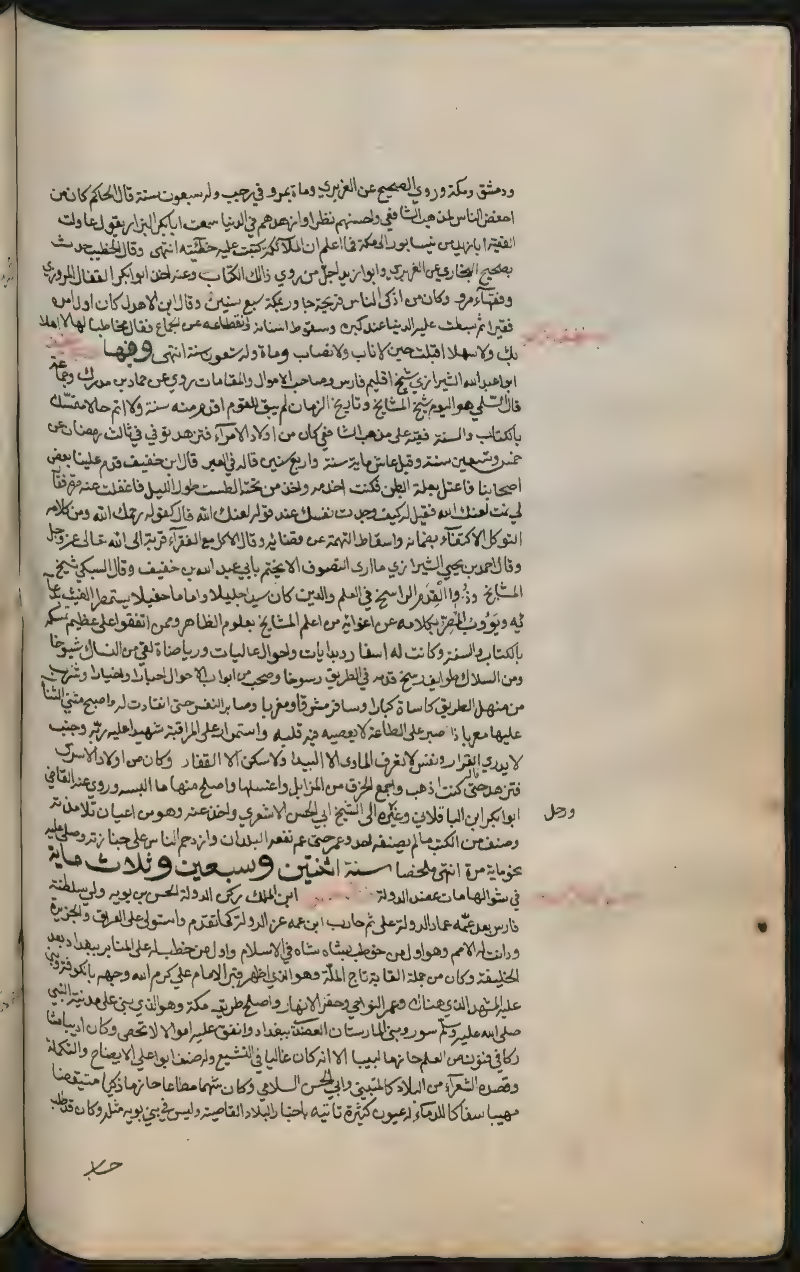 ودمشق ومكة وروي الصحيح عن الفربري ومات بمرو في رجب وله سبعون سنة قال الحاكم كان من
احفظ الناس لمذهب الشافعي واحسنهم نظرا وازهدهم في الدنيا سمعت ابا بكر البزار يقول عادلت
الفقيه ابا زيد من نيسابور الى مكة فما اعلم ان الملائكة كتبت عليه خطيئة انتهى وقال الخطيب حدث
بصحيح البخاري عن الفربري وابو زيد اجل من روي ذلك الكتاب وعنه اخذ ابو بكر القفال المروزي
وفقهاء مرو وكان من اذكى الناس قريحة جاور بمكة سبع سنين وقال ابن الاهدل كان اول امره
فقيرا ثم بسطت عليه الدنيا عند كبره وسقوط اسنانه وانقطاعه عن الجماع فقال مخاطبا لها لا اهلا
بك ولا سهلا اقبلت حين لا ناب ولا نصاب ومات وله تسعون سنة انتهى وفيها
ابو عبد الله الشيرازي شيخ اقليم فارس وصاحب الاحوال والمقامات روي عن حماد بن مدرك وجماعة
قال السلمي هو اليوم شيخ المشايخ وتاريخ الزمان لم يبق للقوم اقدم منه سنة ولا اتم حالا متمسك
بالكتاب والسنة فقيه على مذهب الشافعي كان من اولاد الامرآء فتزهد توفي في ثالث رمضان عن
خمس وتسعين سنة وقيل عاش ماية سنة واربع سنين قاله في العبر قال ابن خفيف قدم علينا بعض
اصحابنا فاعتل بعلة البطن فكنت اخدمه واخذ من تحته الطست طول الليل فاغفلت عنه مرة فقال
لي نمت لعنك الله فقيل له كيف وجدت نفسك عند قوله لعنك الله قال كقوله رحمك الله ومن كلامه
التوكل الاكتفآء بضمانه واسقاط التهمة عن قضائه وقال الاكل مع الفقرآء قربة الى الله تعالى عز وجل
وقال احمد بن يحيى الشيرازي ما ارى التصوف الا يختم بابي عبد الله بن خفيف وقال السبكي شيخ
المشايخ وذو القدم الراسخ في العلم والدين كان سيدا جليلا واماما حفيلا يستمطر الغيث بدعائه
ويؤوب المصر بكلامه عن اغوائه من اعلم المشايخ بعلوم الظاهر وممن اتفقوا على عظيم تمسكه
بالكتاب والسنة وكانت له اسفار وبدايات واحوال عاليات ورياضات لقي من النساك شيوخا
ومن السلاك طوايف رسخ قدمه في الطريق رسوخا وصحب من ابواب الاحوال احبارا واخيارا وشرب
من منهل الطريق كاسات كبارا وسافر مشرقا ومغربا وصابر النفس حتى انقادت له واصبح مثني الثنا
عليها معربا ذا صبر على الطاعة لا يعصيه فيه قلبه واستمرار على المراقبة شهيدا عليه ربه وجنب
لا يدري القرار ونفس لا تعرف المأوى الا البيدا ولا سكن الا القفار وكان من اولاد الامرآء
فتزهد حتى كنت اذهب واجمع الخرق من المزابل واغسلها واصلح منها ما البسه وروي عنه القاضي
ابو بكر ابن الباقلاني وغيره ورحل الى الشيخ ابي الحسن الاشعري واخذ عنه وهو من اعيان تلامذته
وصنف من الكتب ما لم يصنفه احد وعمر حتى عم نفعه البلدان وازدحم الناس على جنازته وصلي عليه
نحو ماية مرة انتهى ملخصا سنة اثنتين وسبعين وثلاث ماية
في شوالها مات عضد الدولة ابن الملك ركن الدولة الحسن بن بويه ولي سلطنة
فارس بعد عمه عماد الدولة علي ثم حارب ابن عمه عز الدولة كما تقدم واستولى على العراق والجزيرة
ودانت له الامم وهو اول من خوطب بشاه شاه في الاسلام واول من خطب له على المنابر ببغداد بعد
الخليفة وكان من جملة القابه تاج الملة وهو الذي اظهر قبر الامام علي كرم الله وجهه بالكوفة وبنى
عليه المشهد الذي هناك وعمر النواحي وحفر الانهار واصلح طريق مكة وهو الذي بنى على مدينة النبي
صلى الله عليه وسلم سور وبنى المارستان العضدي ببغداد وانفق عليه اموالا لا تحصى وكان اديبا مشا
ركا في فنون من العلم حازما لبيبا الا انه كان غاليا في التشيع وله صنف ابو علي الايضاح والتكملة
وقصده الشعرآء من البلاد كالمتنبي وابي الحسن السلامي وكان شهما مطاعا حازما ذكيا متيقظا
مهيبا سفاكا للدماء له عيون كثيرة تاتيه باخبار البلاد القاصية وليس في بني بويه مثله وكان قد طلب